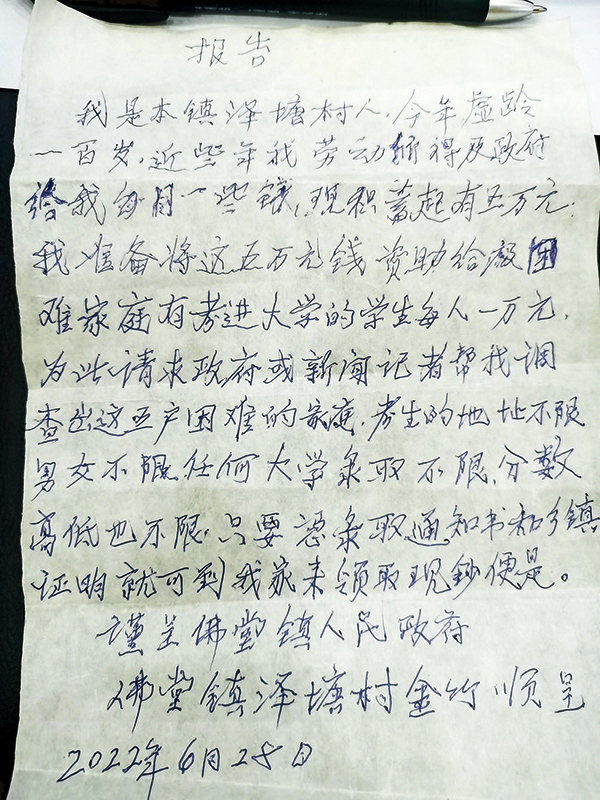 报告
我是本镇泽塘村人,今年虚龄
一百岁,近些年我劳动所得及政府
给我每月一些钱,现积蓄起有五万元.
我准备将这五万元钱资助给
难家庭有考进大学的学生每人一万元.
为此请求政府或新闻记者帮我调
查出这五户困难的家庭.考生的地址不限
男女不限,任何大学录取不限,分数
高低也不限.只要凭录取通知书和乡镇
证明就可到我家来领取现鈔便是。
谨呈佛堂镇人民政府
佛堂镇泽塘村金竹顺呈
2022年6月28日